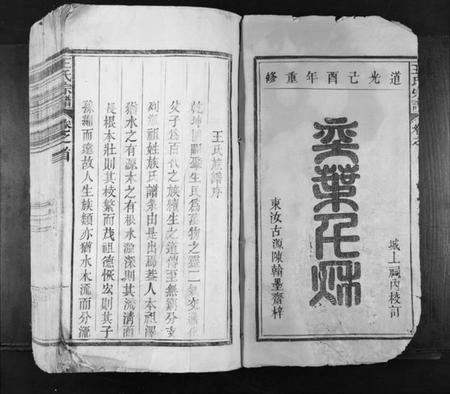 道光己酉年重修
城上祠內校訂
奕葉千秋
東汝古源陳翰墨齋梓
王氏族譜序
乾坤開闢肇生民爲萬物之靈二氣交
父子爲百代之族續生之道傳至無窮分支
列派祖姓族氏譜系由是出焉若人本祖澤
猶水之有源木之有根水源深則其流清而
長根本壯則其枝繁而茂祖德恢宏則其子
孫繩而遠故人生族類亦猶水木流而分流
王氏宗譜
卷之首